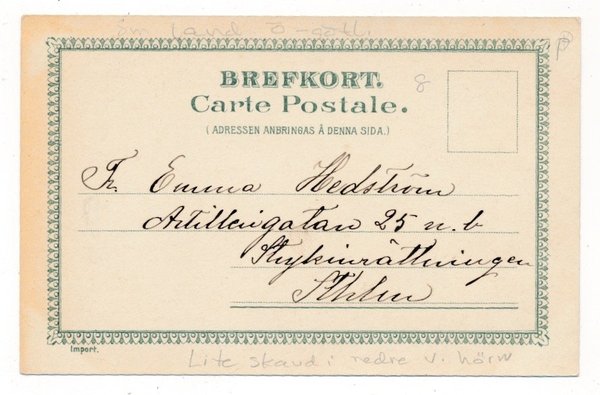 BREFKORT.
8
Carte Postale.
( ADRESSEN ANBRINGAS Å DENNA SIDA.)
Fr. Emma Hedström
Artillerigatan 25 n. b
Strykinrättningen
Sthlm
Import.
Lite skavd i nedre v. hörn